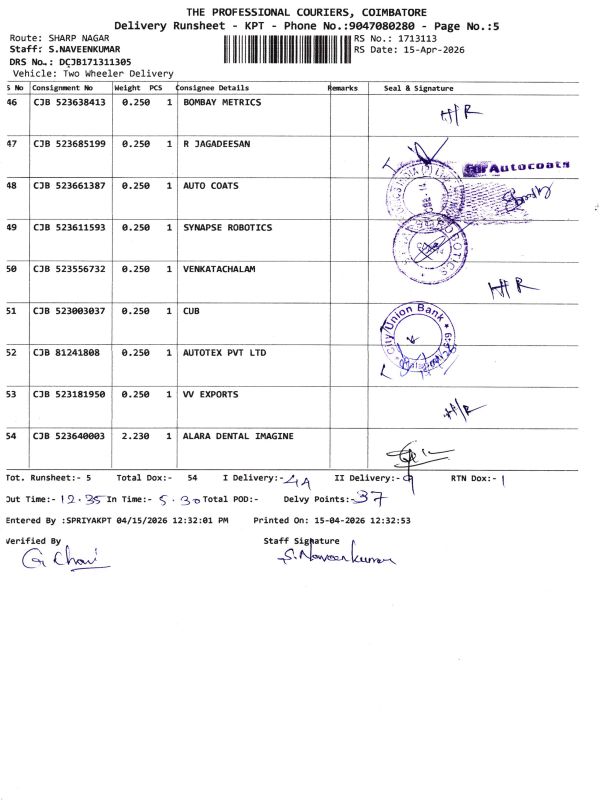 THE PROFESSIONAL COURIERS, COIMBATORE
Delivery Runsheet - KPT - Phone No.:9047080280 - Page No.:5
Route: SHARP NAGAR RS No.: 1713113
Staff: S.NAVEENKUMAR RS Date: 15-Apr-2026
DRS No.: DCJB171311305
Vehicle: Two Wheeler Delivery
S No Consignment No Weight PCS Consignee Details Remarks Seal & Signature
46 CJB 523638413 0.250 1 BOMBAY METRICS H/R
47 CJB 523685199 0.250 1 R JAGADEESAN
For Autocoats
48 CJB 523661387 0.250 1 AUTO COATS
49 CJB 523611593 0.250 1 SYNAPSE ROBOTICS ROBOTICS
50 CJB 523556732 0.250 1 VENKATACHALAM H/R
51 CJB 523003037 0.250 1 CUB City Union Bank
52 CJB 81241808 0.250 1 AUTOTEX PVT LTD
53 CJB 523181950 0.250 1 VV EXPORTS H/R
54 CJB 523640003 2.230 1 ALARA DENTAL IMAGINE
Tot. Runsheet:- 5 Total Dox:- 54 I Delivery:- II Delivery:- 9 RTN Dox:- 1
Out Time:- 12.35 In Time:- 5.30 Total POD:- Delvy Points:- 37
Entered By :SPRIYAKPT 04/15/2026 12:32:01 PM Printed On: 15-04-2026 12:32:53
Verified By Staff Signature
S.Naveenkumar